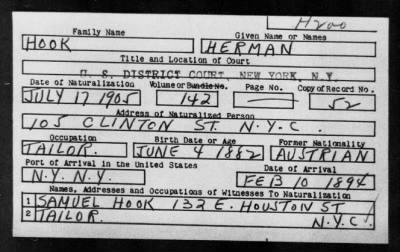 H200
Family Name Given Name or Names
HOOK HERMAN
Title and Location of Court
U. S. DISTRICT COURT, NEW YORK, N.Y.
Date of Naturalization Volume or Bundle No. Page No. Copy of Record No.
JULY 17 1905 142 — 52
Address of Naturalized Person
105 CLINTON ST. N.Y.C.
Occupation Birth Date or Age Former Nationality
TAILOR. JUNE 4 1882 AUSTRIAN
Port of Arrival in the United States Date of Arrival
N.Y. N.Y. FEB 10 1894
Names, Addresses and Occupations of Witnesses To Naturalization
1 SAMUEL HOOK 132 E. HOUSTON ST
2 TAILOR. N.Y.C.